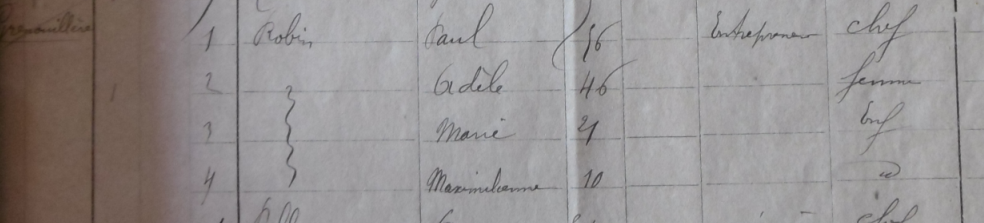 1 Robin Paul 56 Entrepreneur chef
2 Adèle 46 femme
3 Marie 21 Enf
4 Maximilienne 10 "